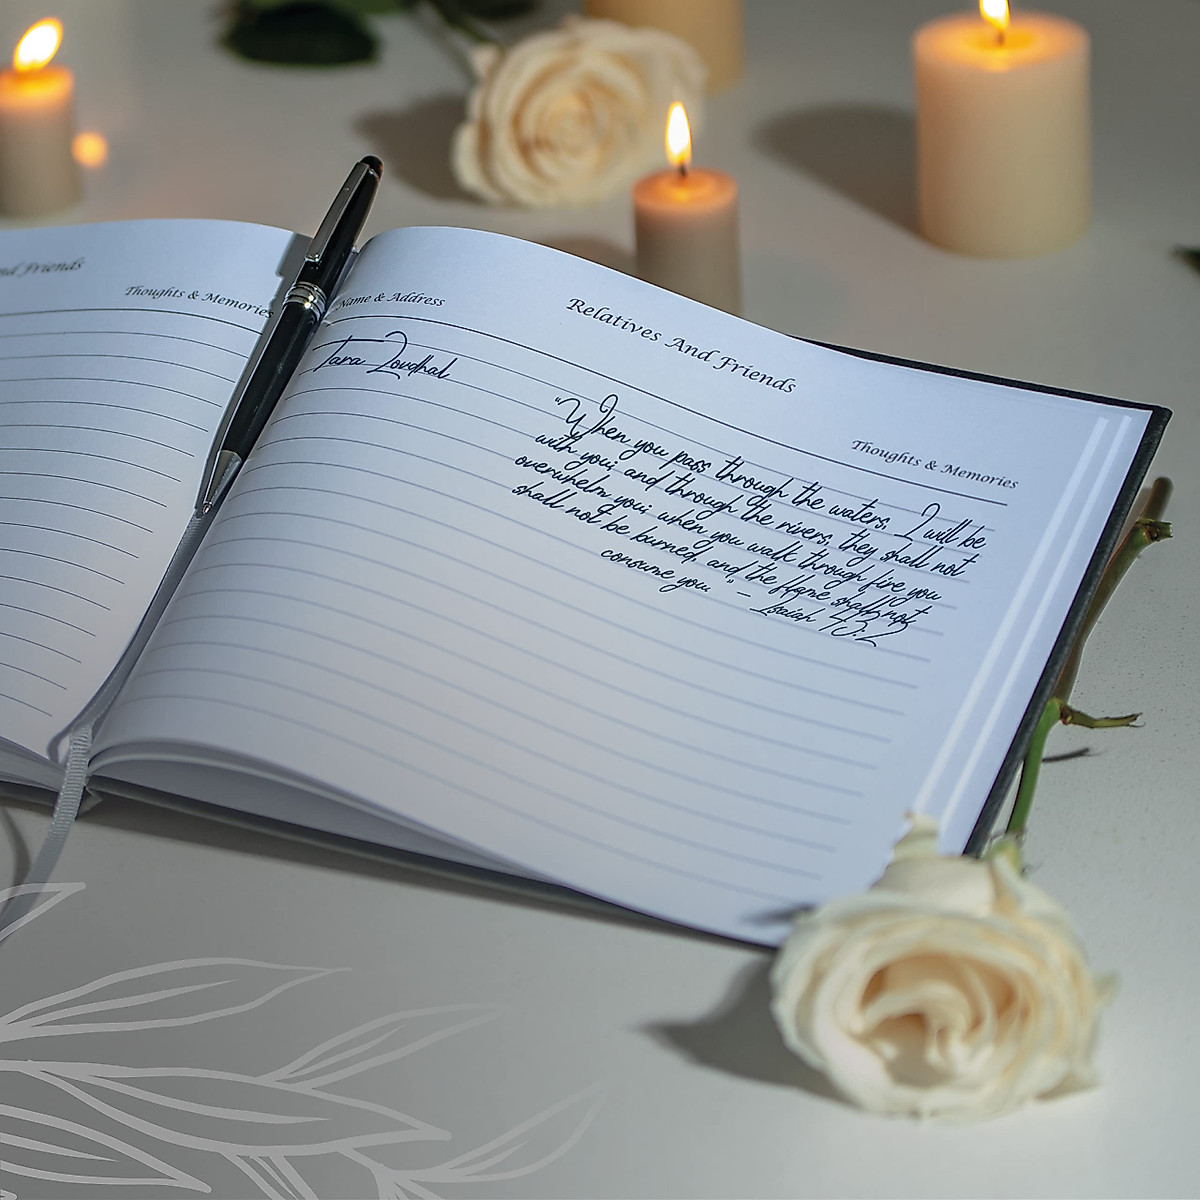 nd Friends
Thoughts & Memories
Name & Address
Relatives And Friends
Thoughts & Memories
Tara Loudhal
"When you pass through the waters, I will be
with you; and through the rivers, they shall not
overwhelm you; when you walk through fire you
shall not be burned, and the flame shall not
consume you." – Isaiah 43:2